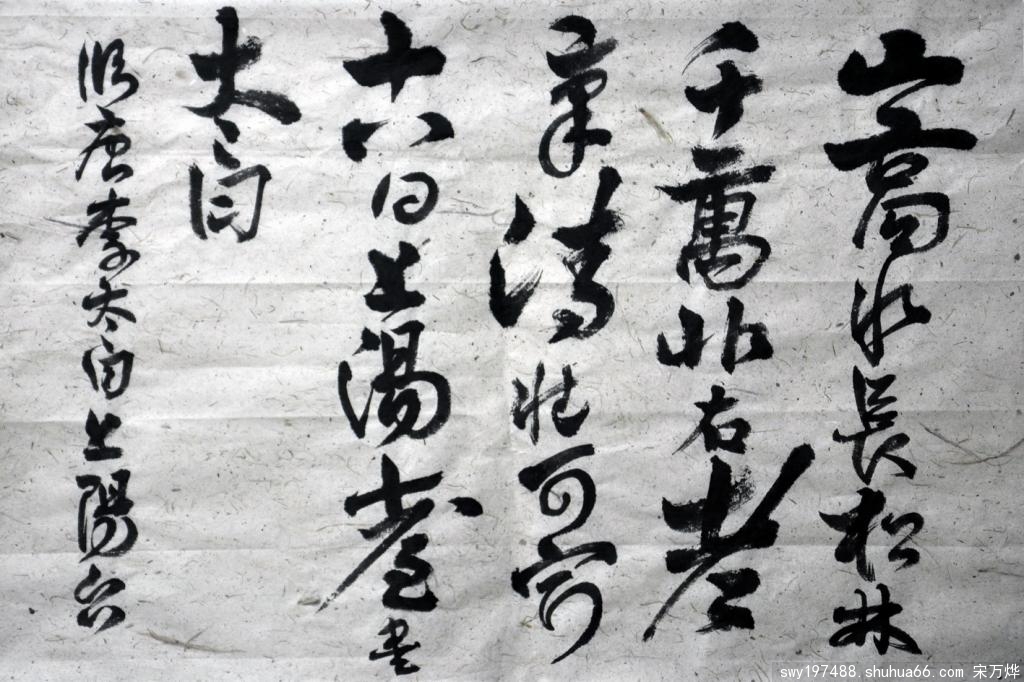 山高水長松林
千萬非右老
筆清壯可窮
十八日上湯臺書
太白
臨唐李太白上陽台
swy197488.shuhua66.com 宋万烨